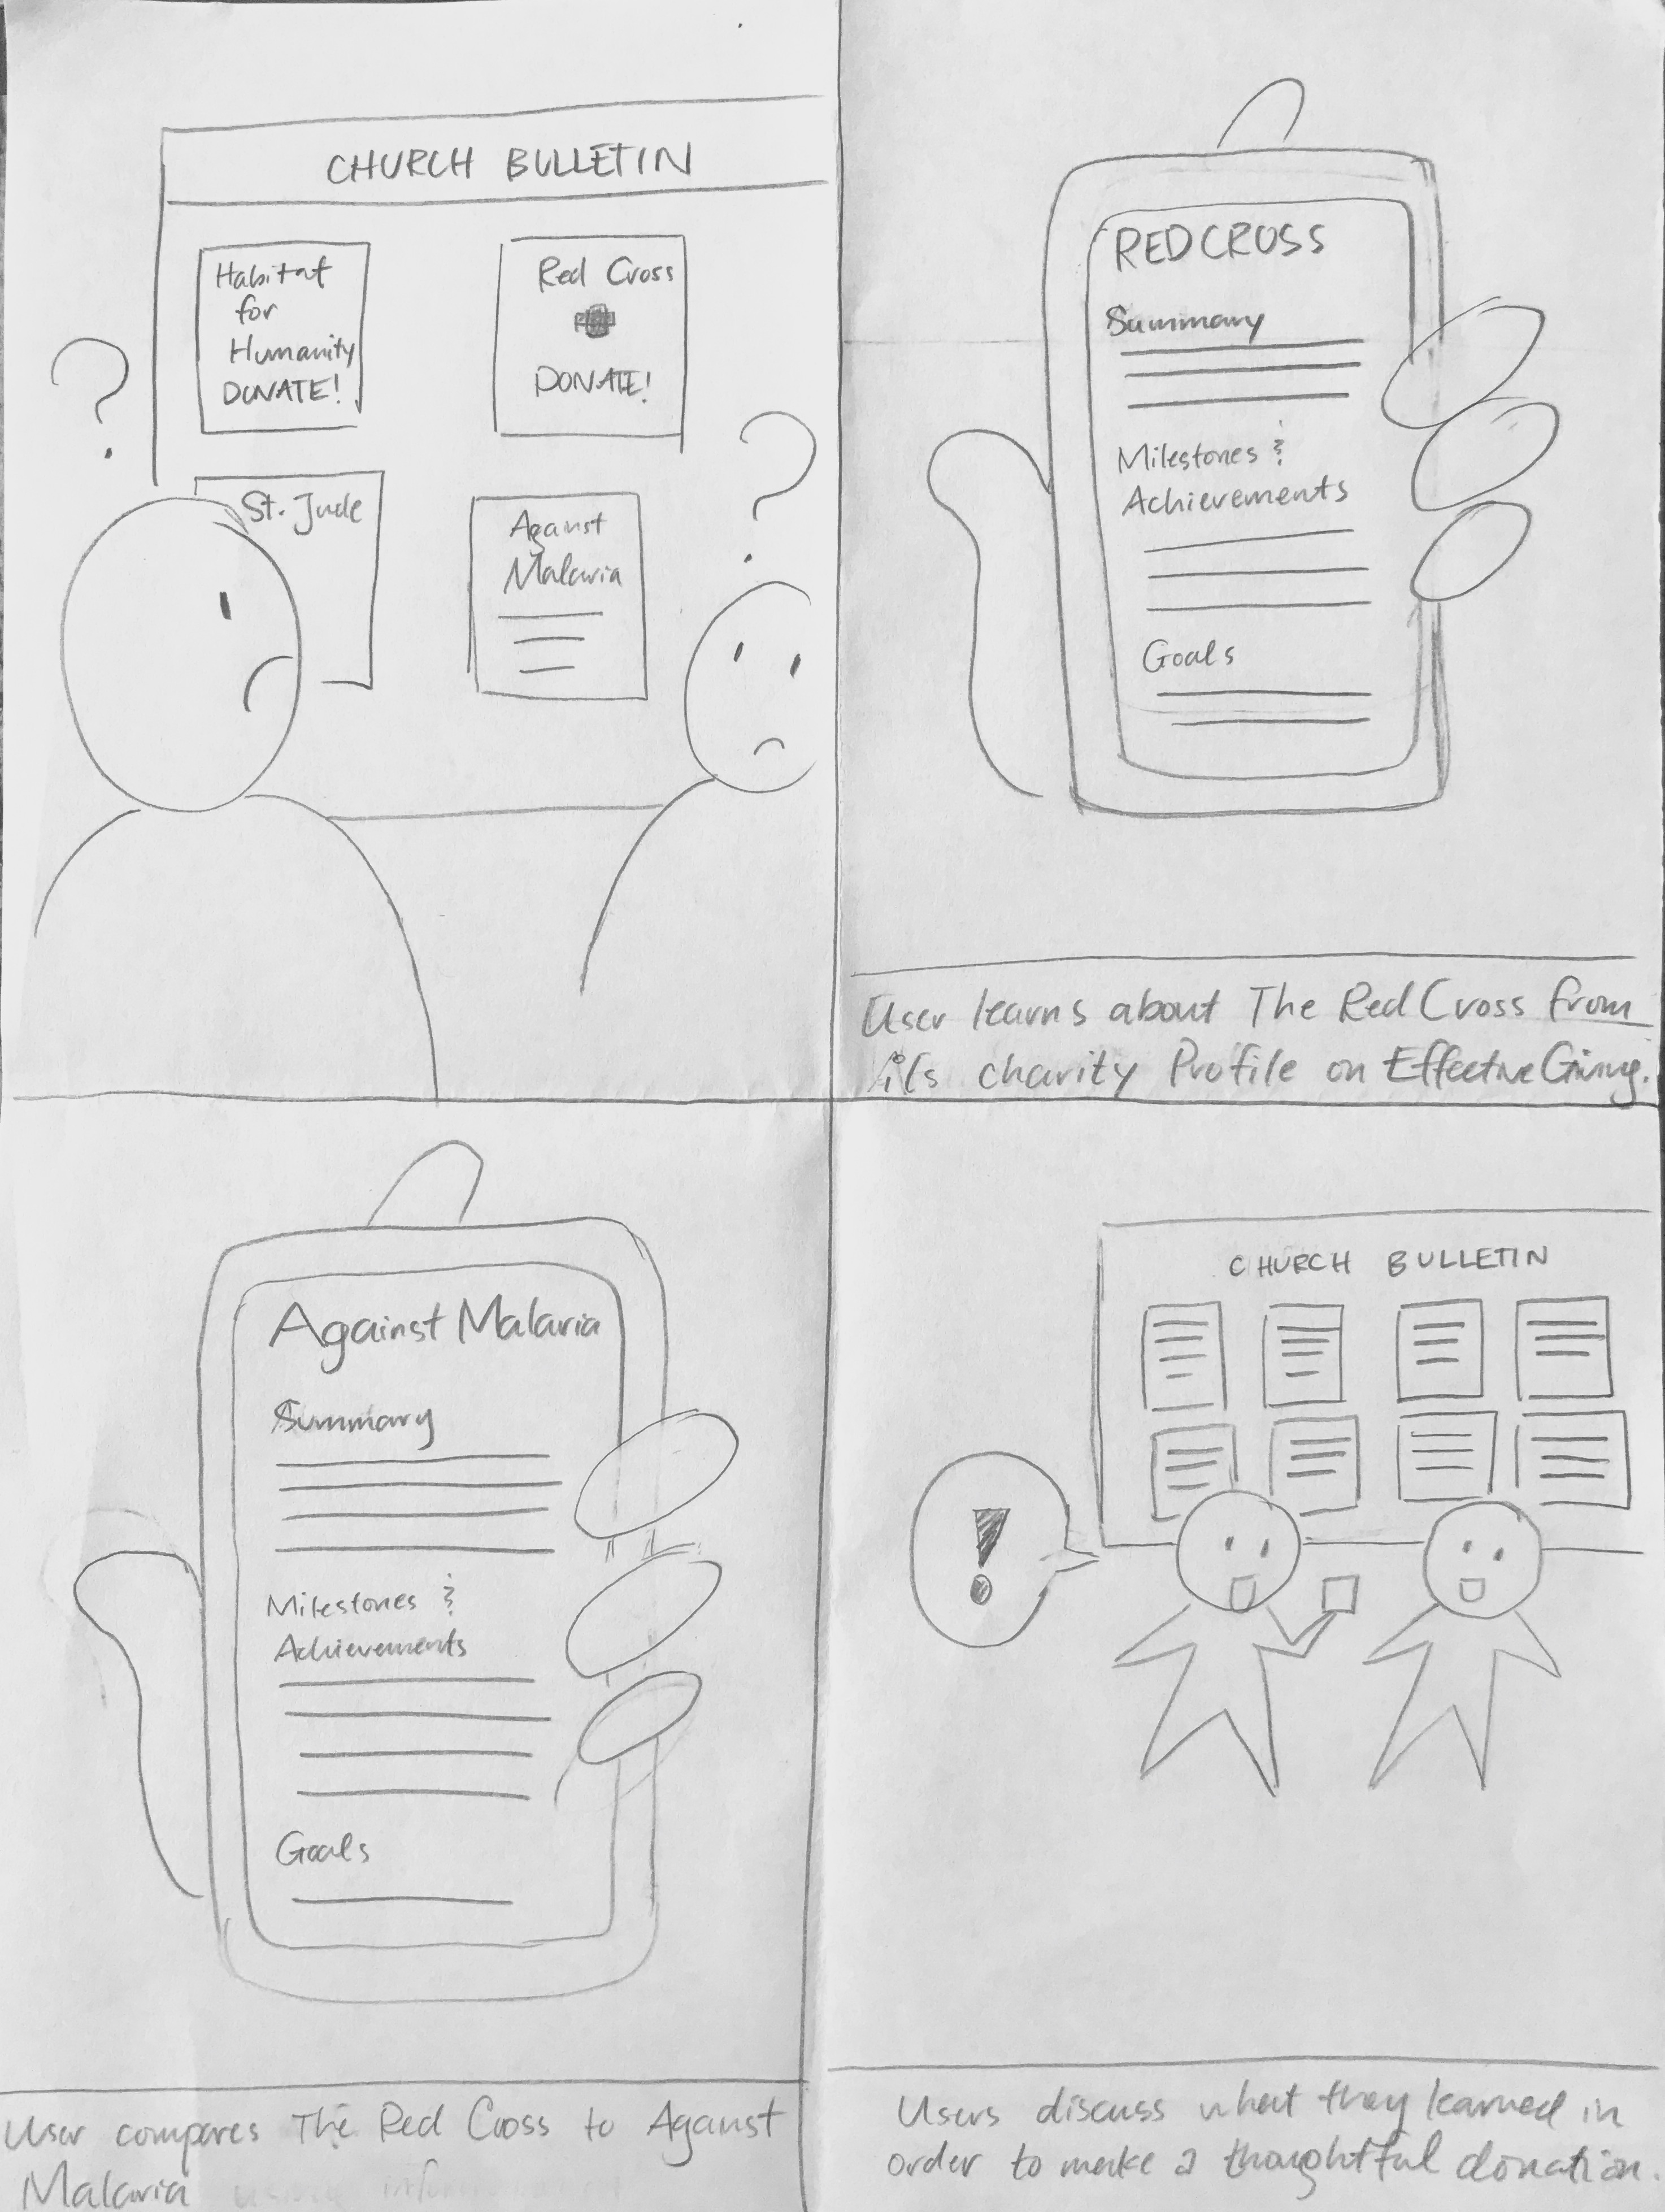 CHURCH BULLETIN
Habitat
for
Humanity
DONATE!
Red Cross
DONATE!
?
St. Jude
Against
Malaria
?
REDCROSS
Summary
Milestones &
Achievements
Goals
User learns about The Red Cross from
its charity Profile on EffectiveGiving.
Against Malaria
Summary
Milestones &
Achievements
Goals
User compares The Red Cross to Against
Malaria
CHURCH BULLETIN
!
Users discuss what they learned in
order to make a thoughtful donation.